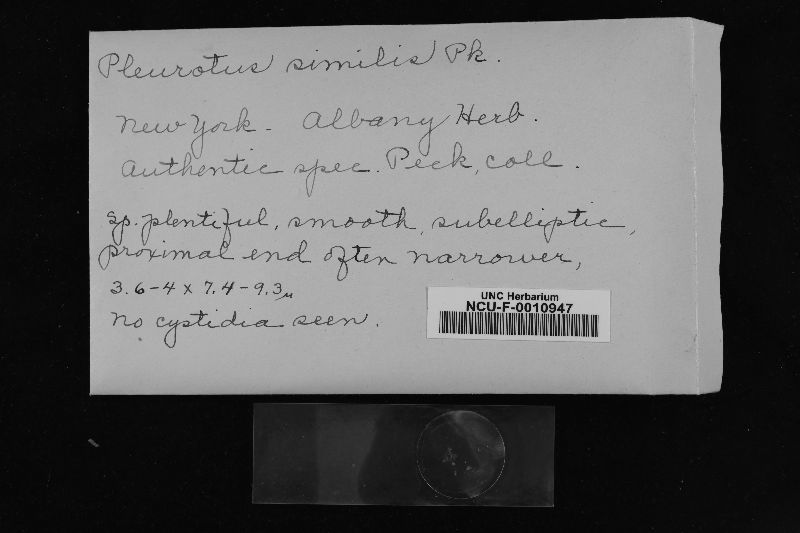 Pleurotus similis Pk.
New York - Albany Herb.
Authentic spec. Peck, coll.
Sp. plentiful, smooth, subelliptic,
proximal end often narrower,
3.6-4 x 7.4-9.3 µ
No cystidia seen.
UNC Herbarium
NCU-F-0010947